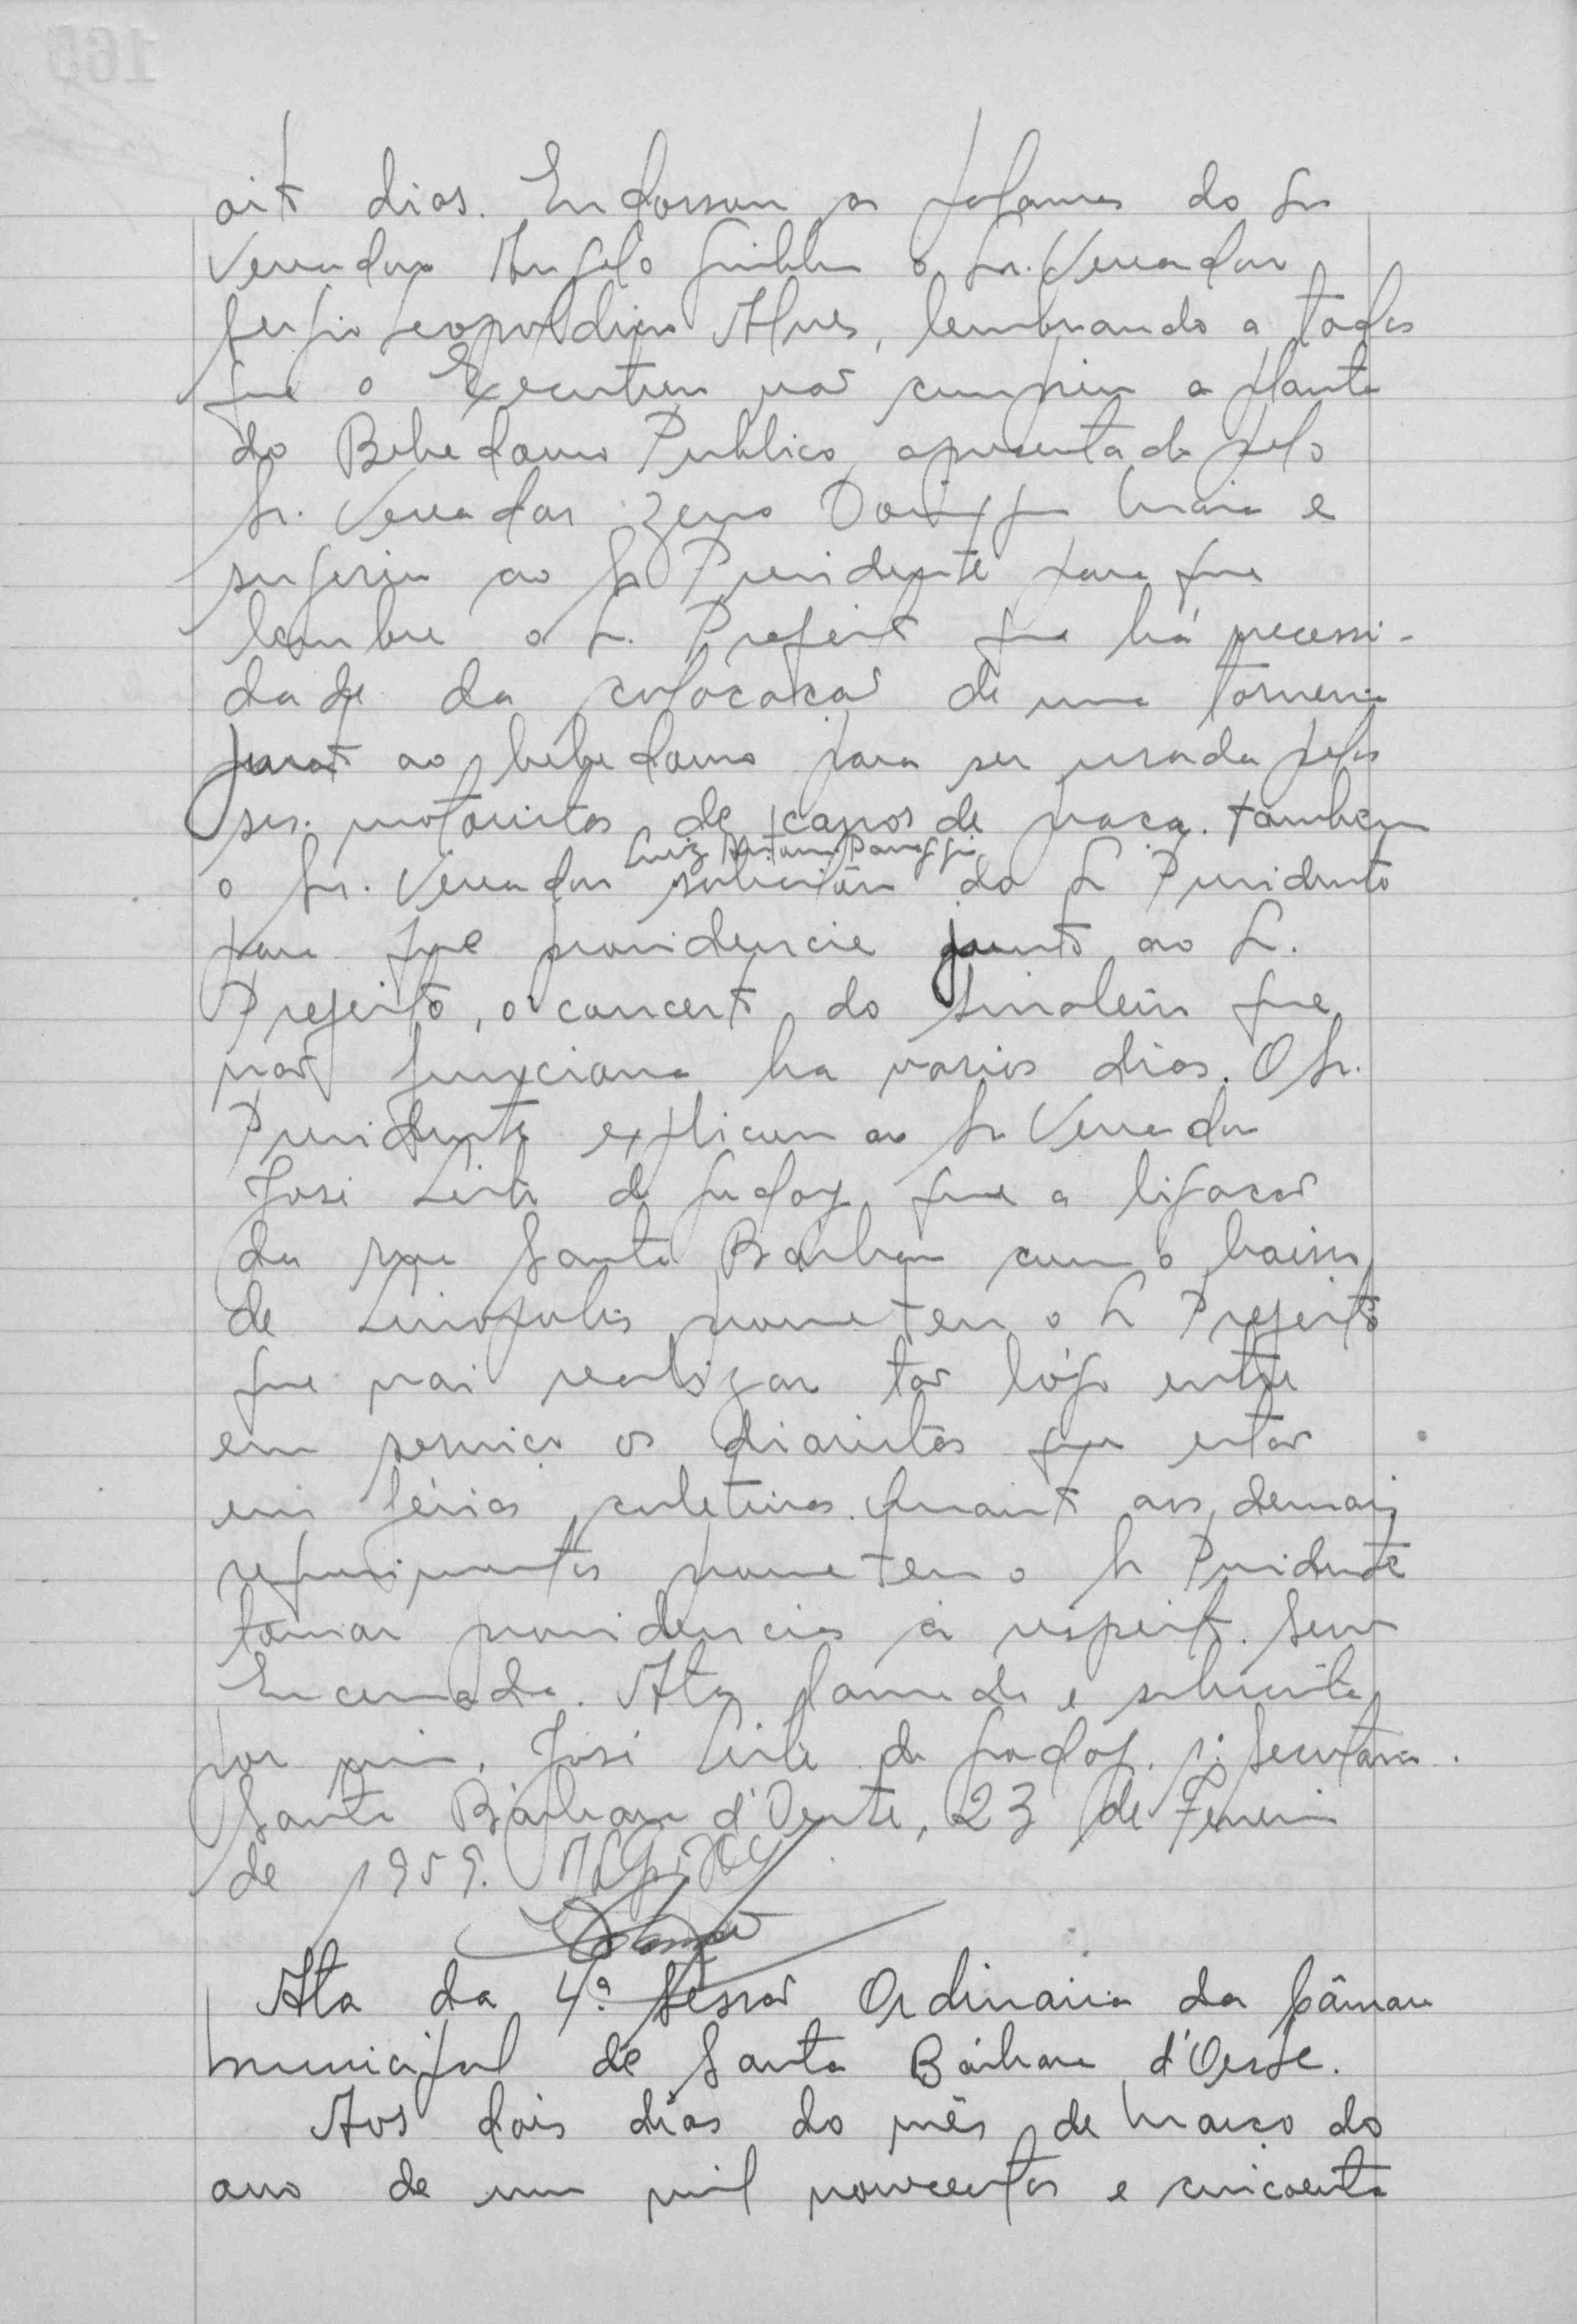 oito dias. Endossou as palavras do Sr
Vereador Angelo Giubbina o Sr. Vereador
Sergio Leopoldino Alves, lembrando a todos
que o Executivo não cumpriu a planta
do Bebedouro Publico, apresentada pelo
Sr. Vereador Zeno Maia e
sugeriu ao Sr Presidente para que
lembre o Sr. Prefeito que há necessi-
dade da colocacão de uma torneira
junto ao bebedouro para ser usada pelos
srs. motoristas de carros de praça. Tambem
Luiz Antonio Panaggio
o Sr. Vereador solicitou do Sr Presidente
para que providencie junto ao Sr.
Prefeito, o concerto do sinaleiro que
não funciona ha varios dias. O Sr.
Presidente explicou ao Sr Vereador
José Leite de Godoy que a ligacão
da rua Santa Bárbara com o bairro
de Linopolis prometeu o Sr Prefeito
que vai realizar tão lógo entre
em serviço os diaristas que estão
em férias coletivas. Quanto aos demais
requerimentos prometeu o Sr Presidente
tomar providencias á respeito. Sendo
Encerrada. Ata lavrada e subscrita
por mim, José Leite de Godoy. 1º Secretario.
Santa Bárbara d'Oeste, 23 de Fevereiro
de 1959.
Ata da 4ª Sessão Ordinaria da Câmara
Municipal de Santa Bárbara d'Oeste.
Aos dois dias do mês de Março do
ano de um mil novecentos e cincoenta